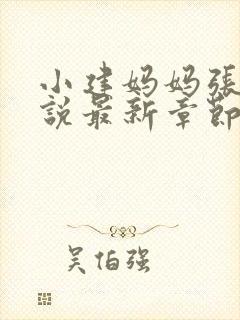 小建妈妈張
說最新章節
吴伯强